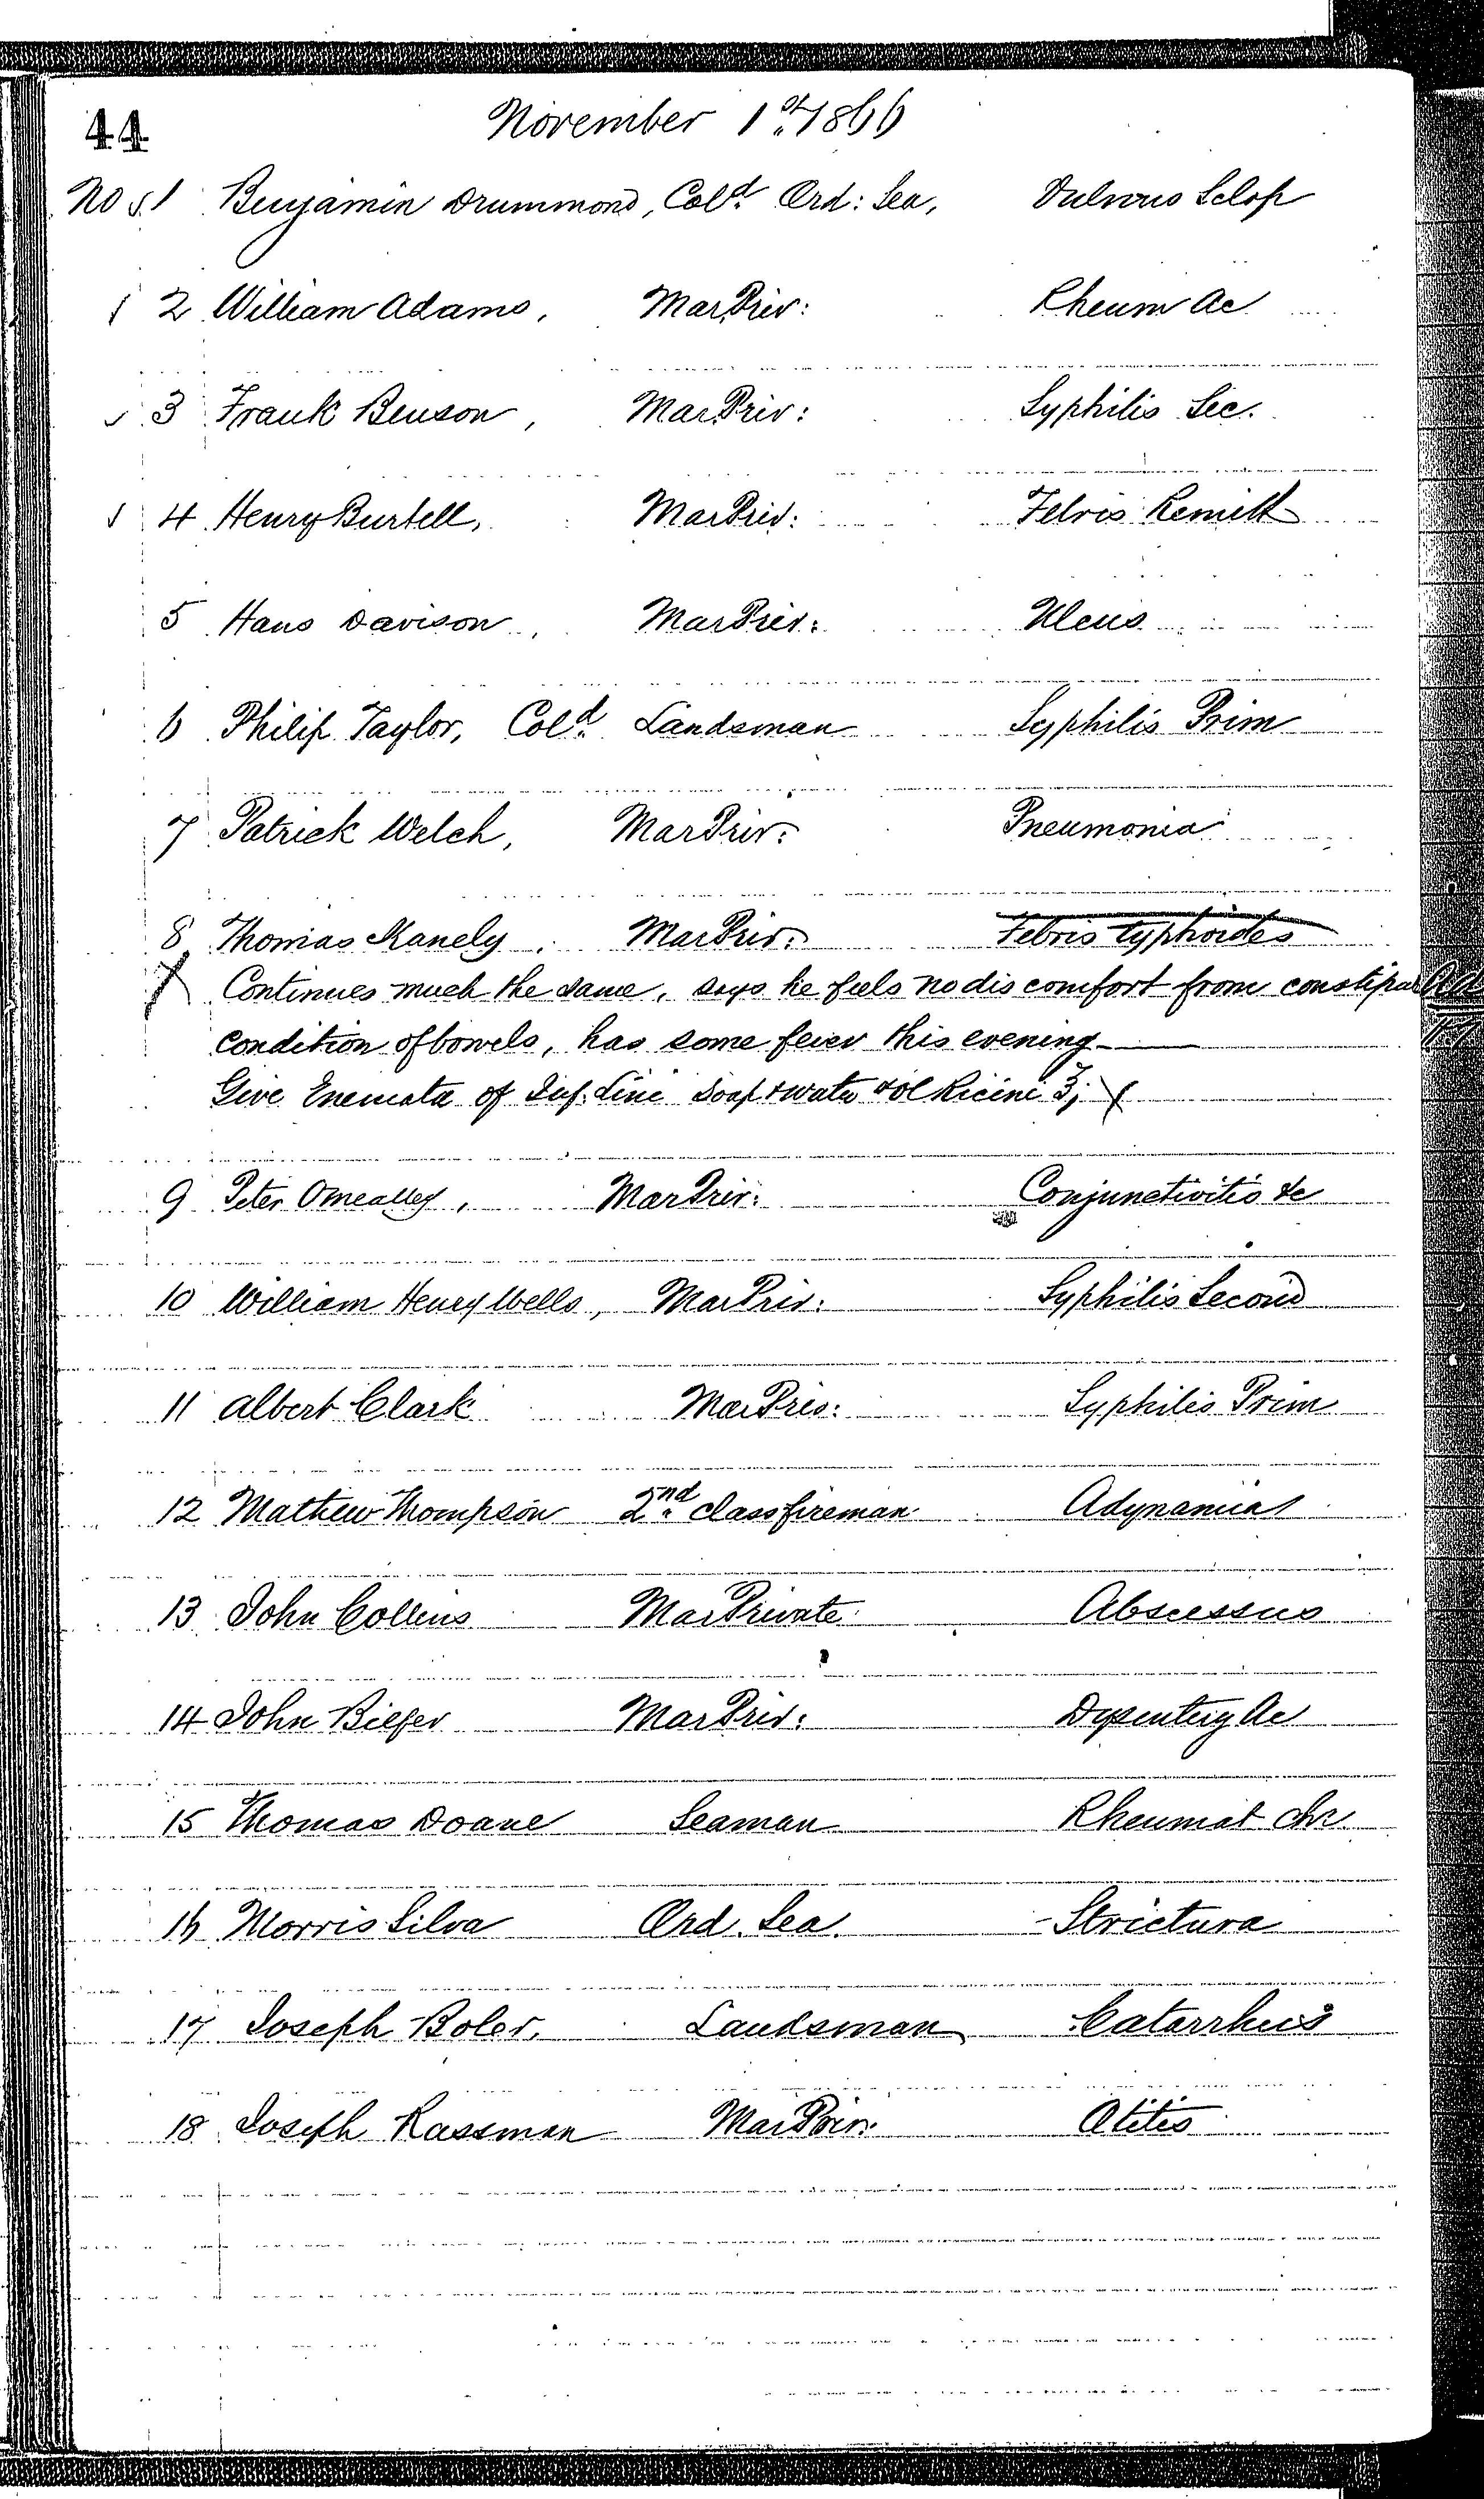 44
November 1st 1866
No 1 Benjamin Drummond, Cold. Ord: Sea, Vulnus Sclop
2 William Adams, Mar Priv: Rheum Ac
3 Frank Benson, Mar Priv: Syphilis Sec.
4 Henry Burtell, Mar Priv: Febris Remitt
5 Hans Davison, Mar Priv: Ulcus
6 Philip Taylor, Cold. Landsman Syphilis Prim
7 Patrick Welch, Mar Priv: Pneumonia
8 Thomas Kanely, Mar Priv: Febris typhoides
Continues much the same, says he feels no discomfort from
condition of bowels, has some fever this evening
Give Enemata of Inf. Lini Soap & water & Ol Ricini ℥j
9 Peter Omealley, Mar Priv: Conjunctivitis &c
10 William Henry Wells, Mar Priv: Syphilis Second
11 Albert Clark Mar Priv: Syphilis Prim
12 Mathew Thompson 2nd. class fireman Adynamia
13 John Collins Mar Private Abscessus
14 John Biefer Mar Priv: Dysentery Ac
15 Thomas Doane Seaman Rheumat chr
16 Morris Silva Ord. Sea. Strictura
17 Joseph Boler, Landsman Catarrhus
18 Joseph Rassman Mar Priv: Otitis